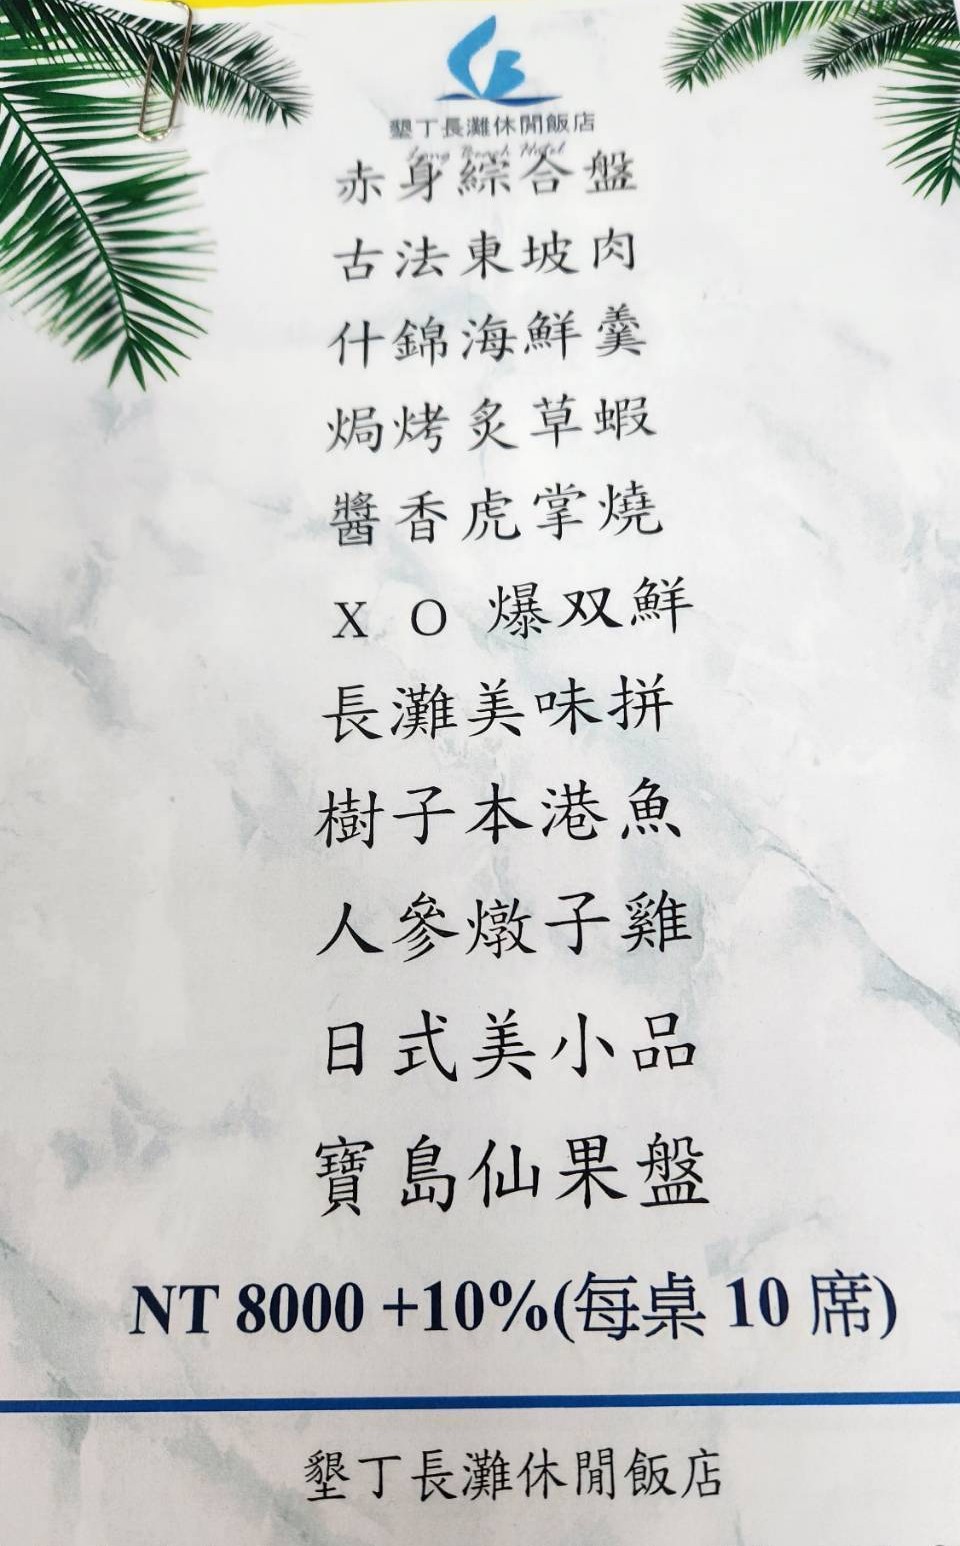 墾丁長灘休閒飯店
Long Beach Hotel
赤身綜合盤
古法東坡肉
什錦海鮮羹
焗烤炙草蝦
醬香虎掌燒
XO爆双鮮
長灘美味拼
樹子本港魚
人參燉子雞
日式美小品
寶島仙果盤
NT 8000 +10%(每桌 10 席)
墾丁長灘休閒飯店